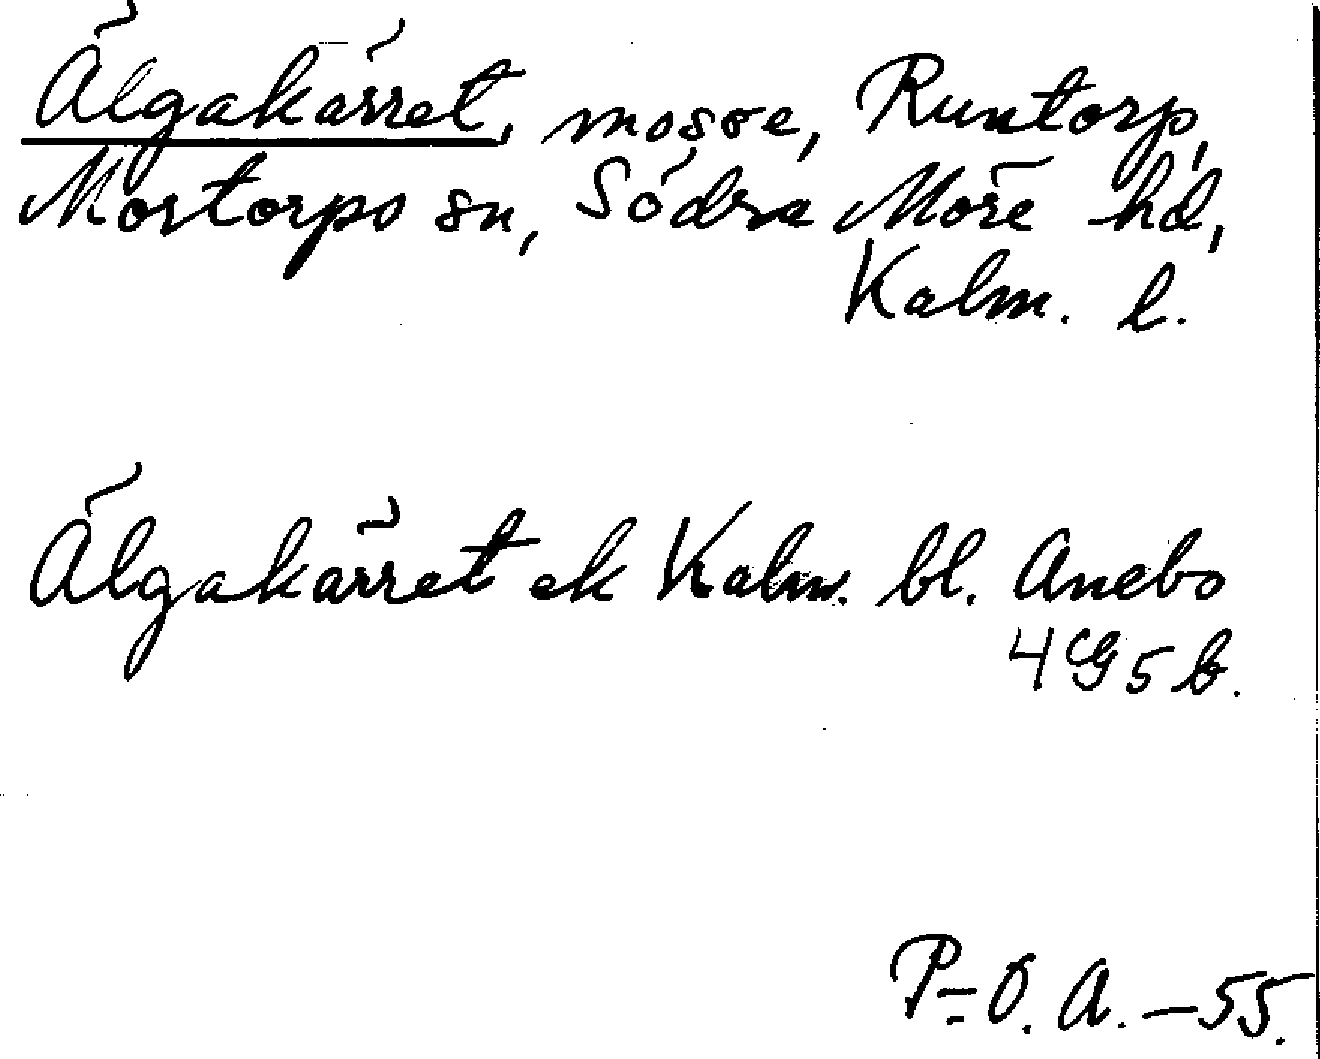 Älgakärret, mosse, Runtorp,
Mortorps sn, Södra Möre hd,
Kalm. l.
Älgakärret ek Kalm. bl. Anebo
4G5b.
P-O. A. -55.